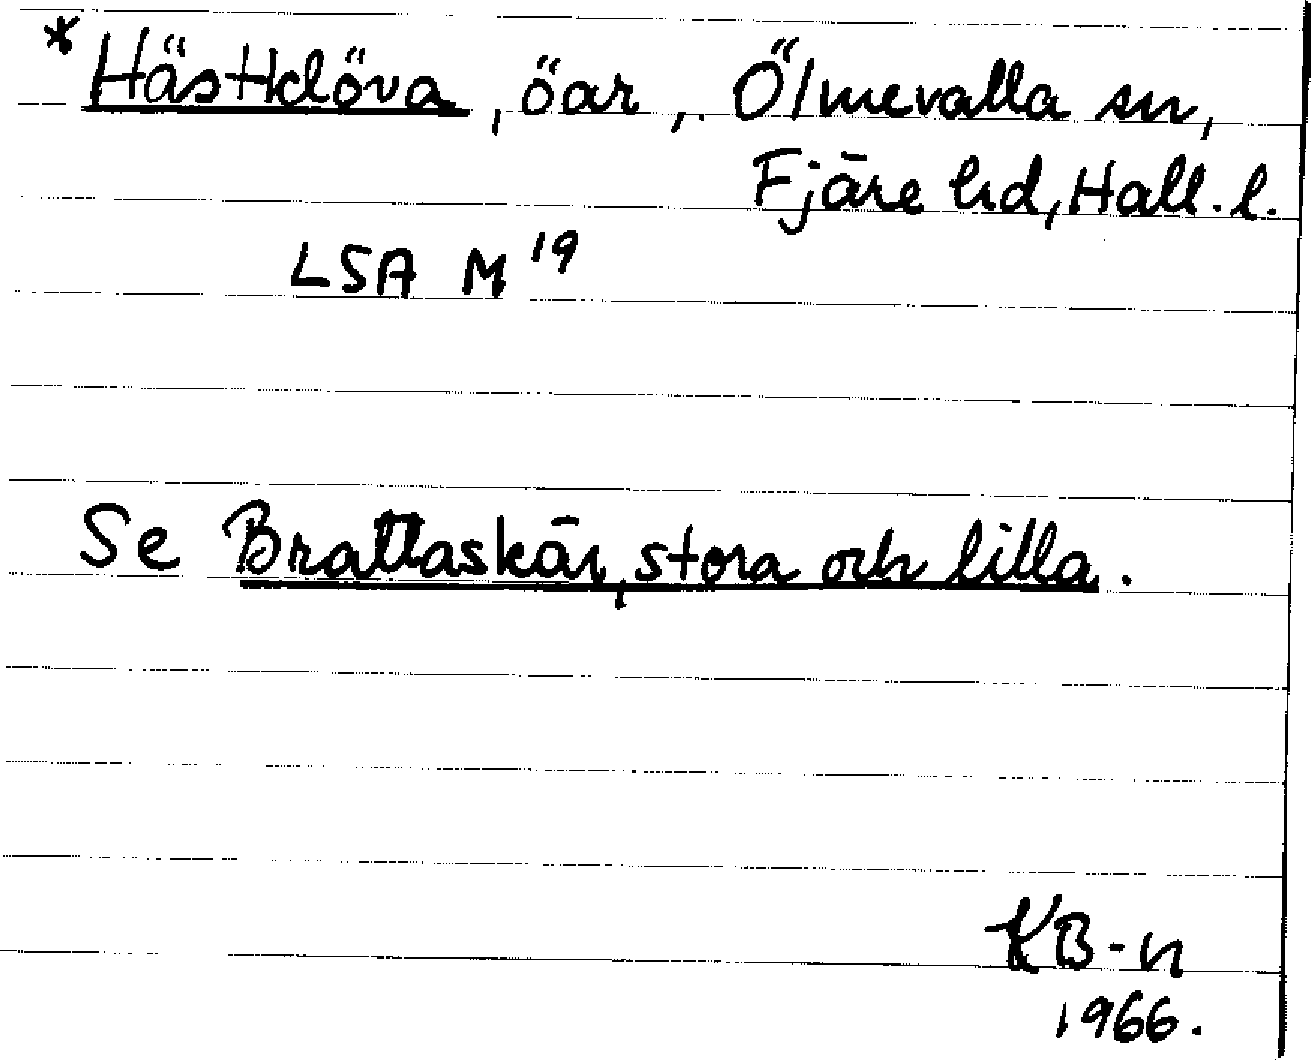 *Hästklöva, öar, Ölmevalla sn,
Fjäre hd, Hall. l.
LSA M 19
Se Brattaskär, stora och lilla.
KB-n
1966.